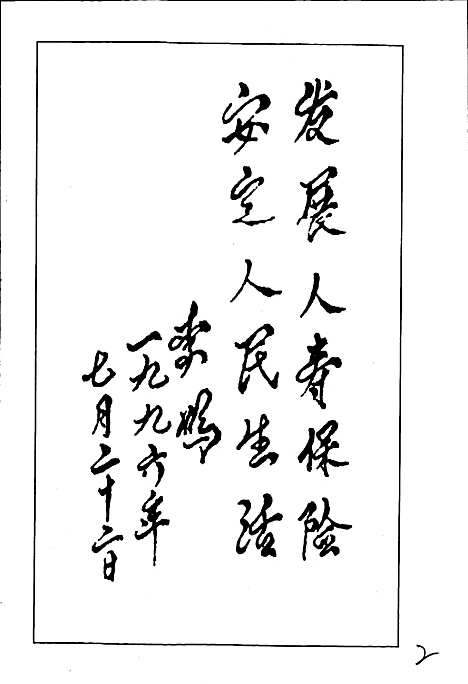 发展人寿保险
安定人民生活
李鹏
一九九六年
七月二十二日
2